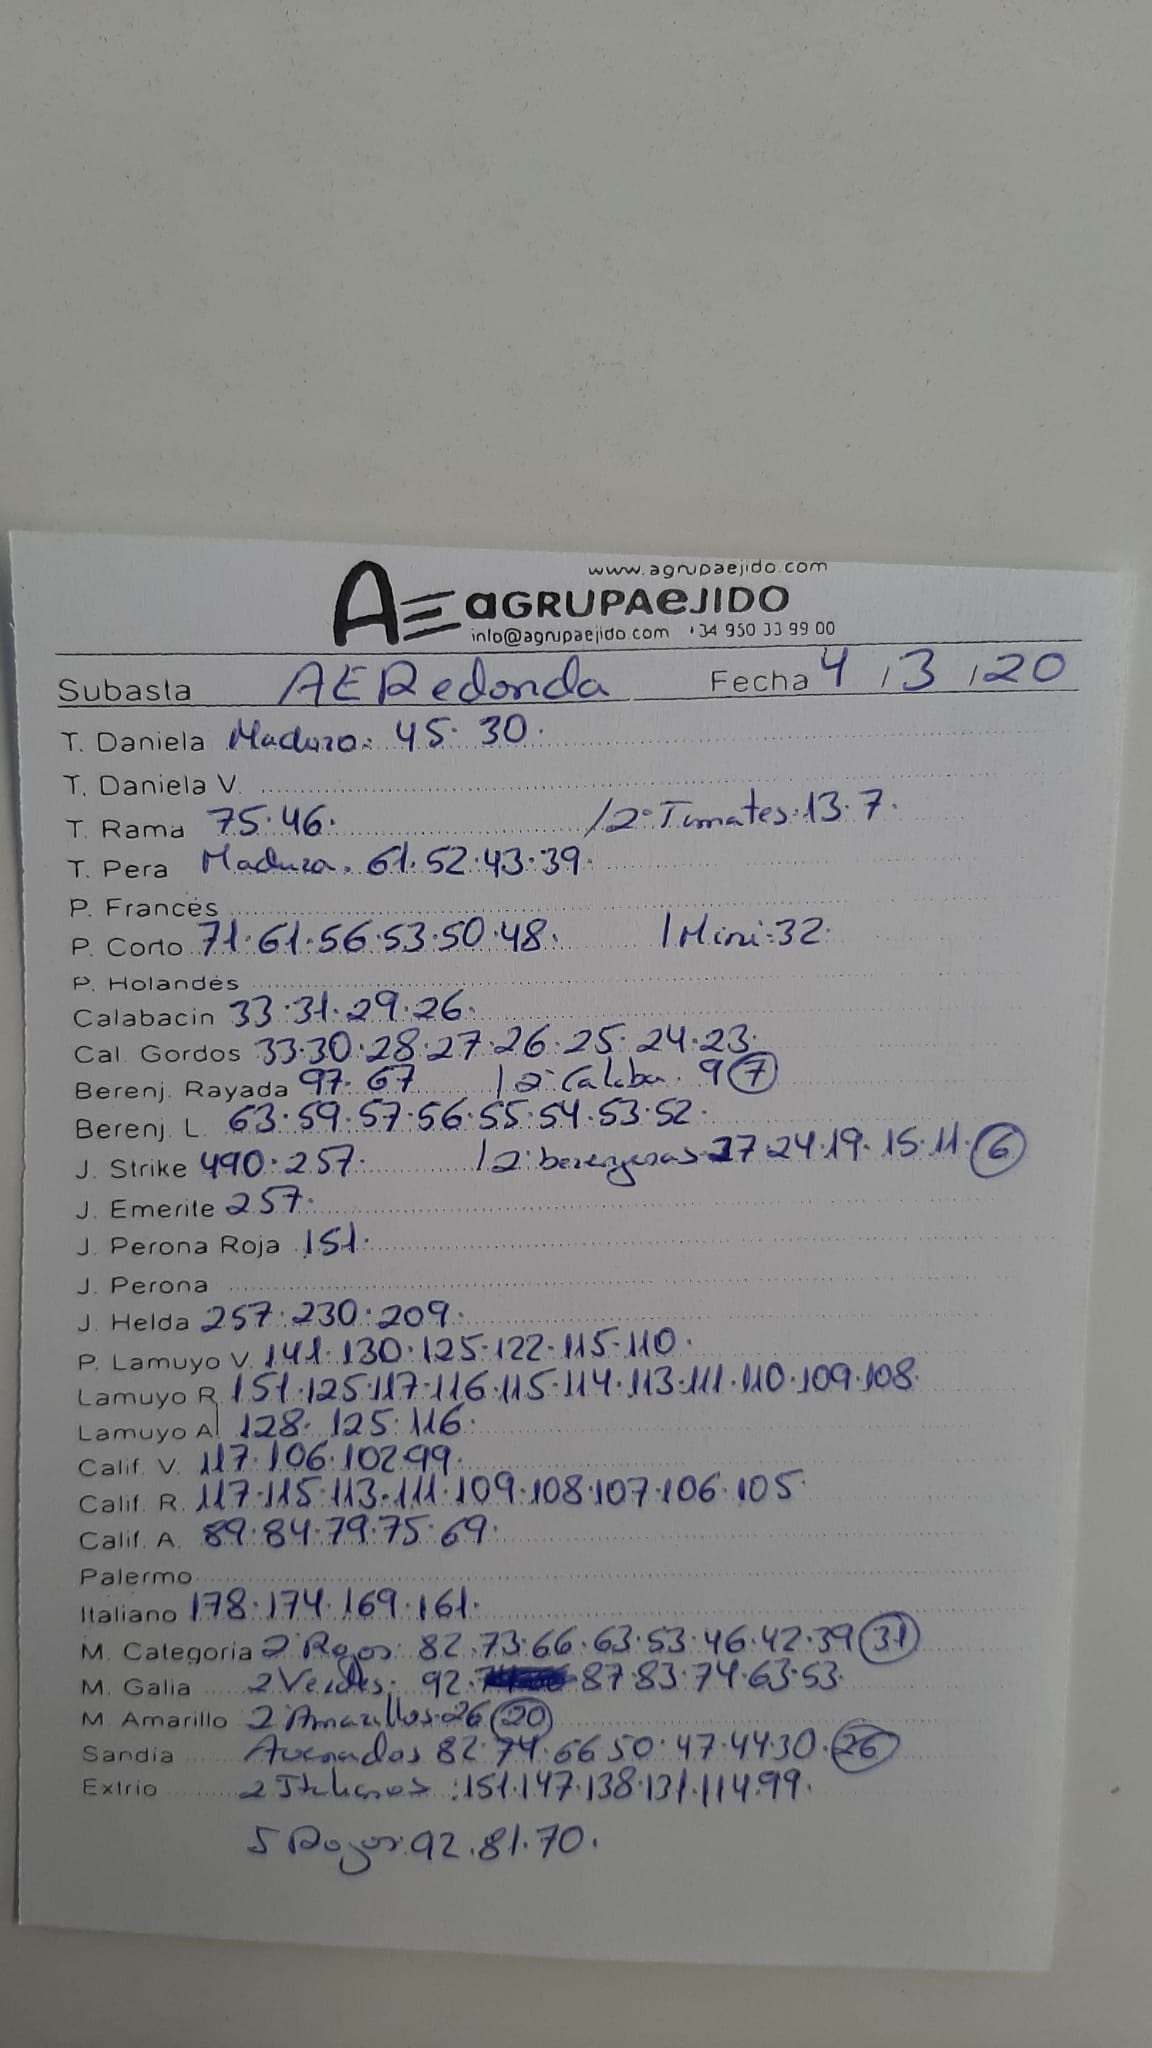 www.agrupaejido.com
AE aGRUPAeJIDO
info@agrupaejido.com +34 950 33 99 00
Subasta AE Redonda Fecha 4 / 3 / 20
T. Daniela Maduro: 45. 30.
T. Daniela V.
T. Rama 75.46. /2ª Tomates: 13.7.
T. Pera Madura. 61.52.43.39.
P. Francés
P. Corto 71.61.56.53.50.48. / Mini: 32.
P. Holandés
Calabacin 33.31.29.26.
Cal. Gordos 33.30.28.27.26.25.24.23.
Berenj. Rayada 97.67 /2ª Calaba. 9 7
Berenj. L. 63.59.57.56.55.54.53.52.
J. Strike 490.257. /2ª berengenas 27.24.19.15.11. 6
J. Emerite 257.
J. Perona Roja 151.
J. Perona
J. Helda 257.230.209.
P. Lamuyo V. 141.130.125.122.115.110.
Lamuyo R. 151.125.117.116.115.114.113.111.110.109.108.
Lamuyo A 128. 125.116.
Calif. V. 117.106.102.99.
Calif. R. 117.115.113.111.109.108.107.106.105.
Calif. A. 89.84.79.75.69.
Palermo
Italiano 178.174.169.161.
M. Categoria 2ª Rojos: 82.73.66.63.53.46.42.39 31
M. Galia 2 Verdes: 92. 87.83.74.63.53.
M. Amarillo 2 Amarillos.26 20
Sandía Asurcados 82.74.66 50.47.44 30. 26
Extrio 2 Italianos: 151.147.138.131.114.99.
5 Rojos: 92.81.70.